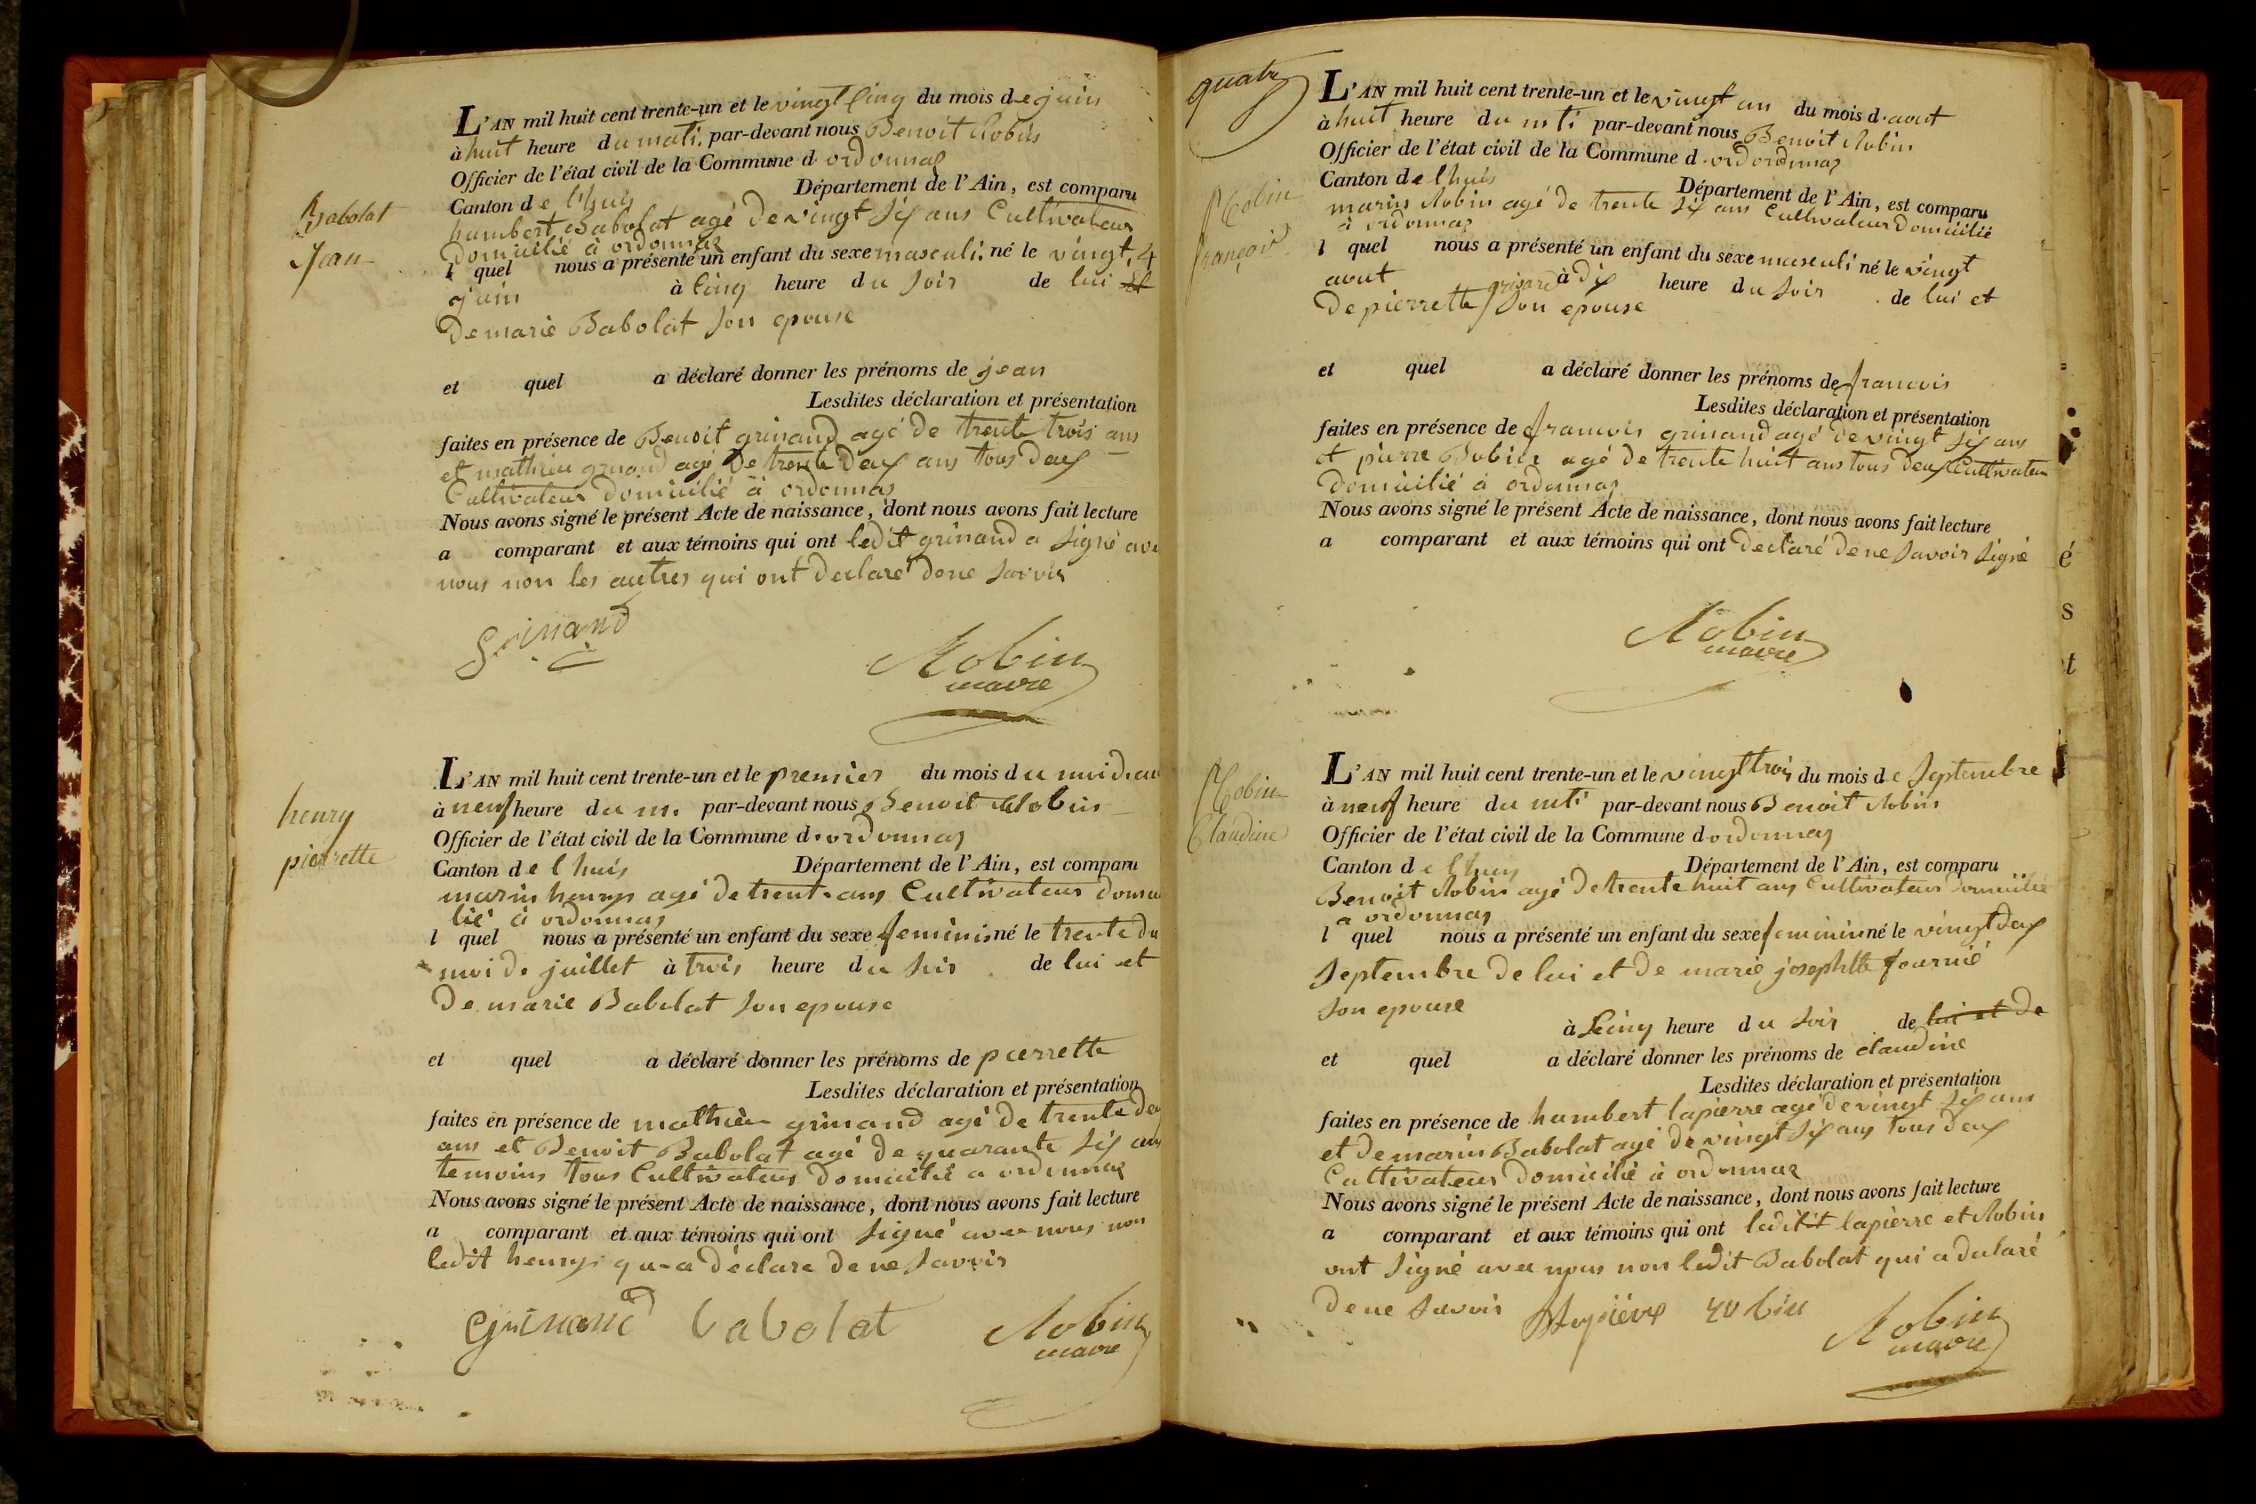 Babolat
Jean
L'AN mil huit cent trente-un et le vingt cinq du mois de juin
à huit heure du mati. par-devant nous Benoit Robin
Officier de l'état civil de la Commune d ordonnaz
Canton de l'huis Département de l'Ain, est comparu
humbert Babolat agé de vingt six ans Cultivateur
domicilié à ordonnaz
l quel nous a présenté un enfant du sexe masculi. né le vingt, 4
juin à cinq heure du soir de lui et
de marie Babolat son epouse
et quel a déclaré donner les prénoms de jean
Lesdites déclaration et présentation
faites en présence de Benoit grinand agé de trente trois ans
et mathieu grinand agé de trente deux ans tous deux
Cultivateur domicilié à ordonnaz
Nous avons signé le présent Acte de naissance, dont nous avons fait lecture
a comparant et aux témoins qui ont ledit grinand a signé ave
nous non les autres qui ont declaré de ne savoir
Grinand
Robin
maire
henry
pierrette
L'AN mil huit cent trente-un et le premier du mois du moi d'aou
à neuf heure du m. par-devant nous Benoit Robin
Officier de l'état civil de la Commune d. ordonnaz
Canton de l huis Département de l'Ain, est comparu
marin henry agé de trent. ans Cultivateur domici
lié à ordonnaz
l quel nous a présenté un enfant du sexe feminin né le trente du
moi de juillet à trois heure du soir de lui et
de marie Babolat son epouse
et quel a déclaré donner les prénoms de pierrette
Lesdites déclaration et présentation
faites en présence de mathieu grinand agé de trente deu
ans et Benoit Babolat agé de quarante six ans
temoins tous Cultivateur domicilié a ordonnaz
Nous avons signé le présent Acte de naissance, dont nous avons fait lecture
a comparant et aux témoins qui ont signé avec nous non
ledit henry qu-a déclare de ne savoir
Grinand babolat Robin
maire
quatre
Robin
françois
L'AN mil huit cent trente-un et le vingt un du mois d. aout
à huit heure du mti par-devant nous Benoit Robin
Officier de l'état civil de la Commune d. ordordonnaz
Canton de lhuis Département de l'Ain, est comparu
marin Robin agé de trente six ans Cultivateur domicilié
à ordonnaz
l quel nous a présenté un enfant du sexe masculi né le vingt
aout à dix heure du soir de lui et
de pierrette grinand son epouse
et quel a déclaré donner les prénoms de francois
Lesdites déclaration et présentation
faites en présence de francois grinand agé de vingt six ans
et pierre Robin agé de trente huit ans tous deux Cultivateur
domicilié à ordonnaz
Nous avons signé le présent Acte de naissance, dont nous avons fait lecture
a comparant et aux témoins qui ont declaré de ne savoir signé
Robin
maire
Robin
Claudine
L'AN mil huit cent trente-un et le vingt trois du mois de septembre
à neuf heure du mti par-devant nous Benoit Robin
Officier de l'état civil de la Commune d ordonnaz
Canton de l'huis Département de l'Ain, est comparu
Benoit Robin agé de trente huit ans Cultivateur domicilié
a ordonnaz
l quel nous a présenté un enfant du sexe feminin né le vingt deux
septembre de lui et de marie josephtte fournié
son epouse
à cinq heure du soir de lui et de
et quel a déclaré donner les prénoms de claudine
Lesdites déclaration et présentation
faites en présence de humbert lapierre agé de vingt six ans
et de marin Babolat agé de vingt six ans tous deux
Cultivateur domicilié à ordonnaz
Nous avons signé le présent Acte de naissance, dont nous avons fait lecture
a comparant et aux témoins qui ont ledit lapierre et Robin
ont signé avec nous non ledit Babolat qui a declaré
de ne savoir robin Robin
maire
é
s
t